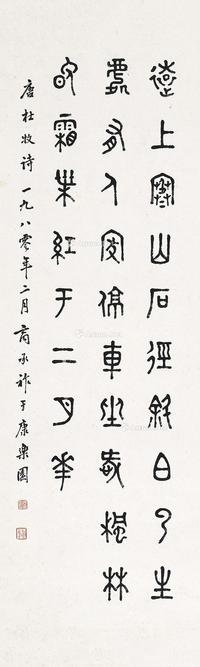 遠上寒山石徑斜白云生
處有人家停車坐愛楓林
晚霜枼紅于二月花
唐杜牧詩一九八零年二月商承祚于康樂園